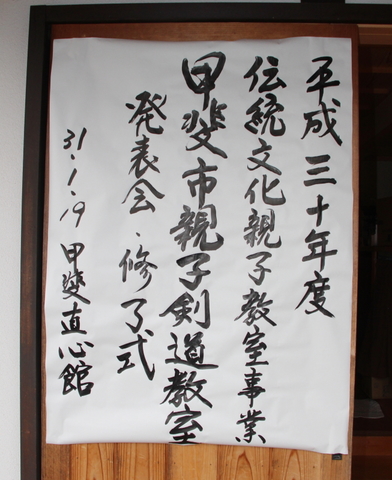 平成三十年度
伝統文化親子教室事業
甲斐市親子剣道教室
発表会・修了式
31.1.19 甲斐直心館